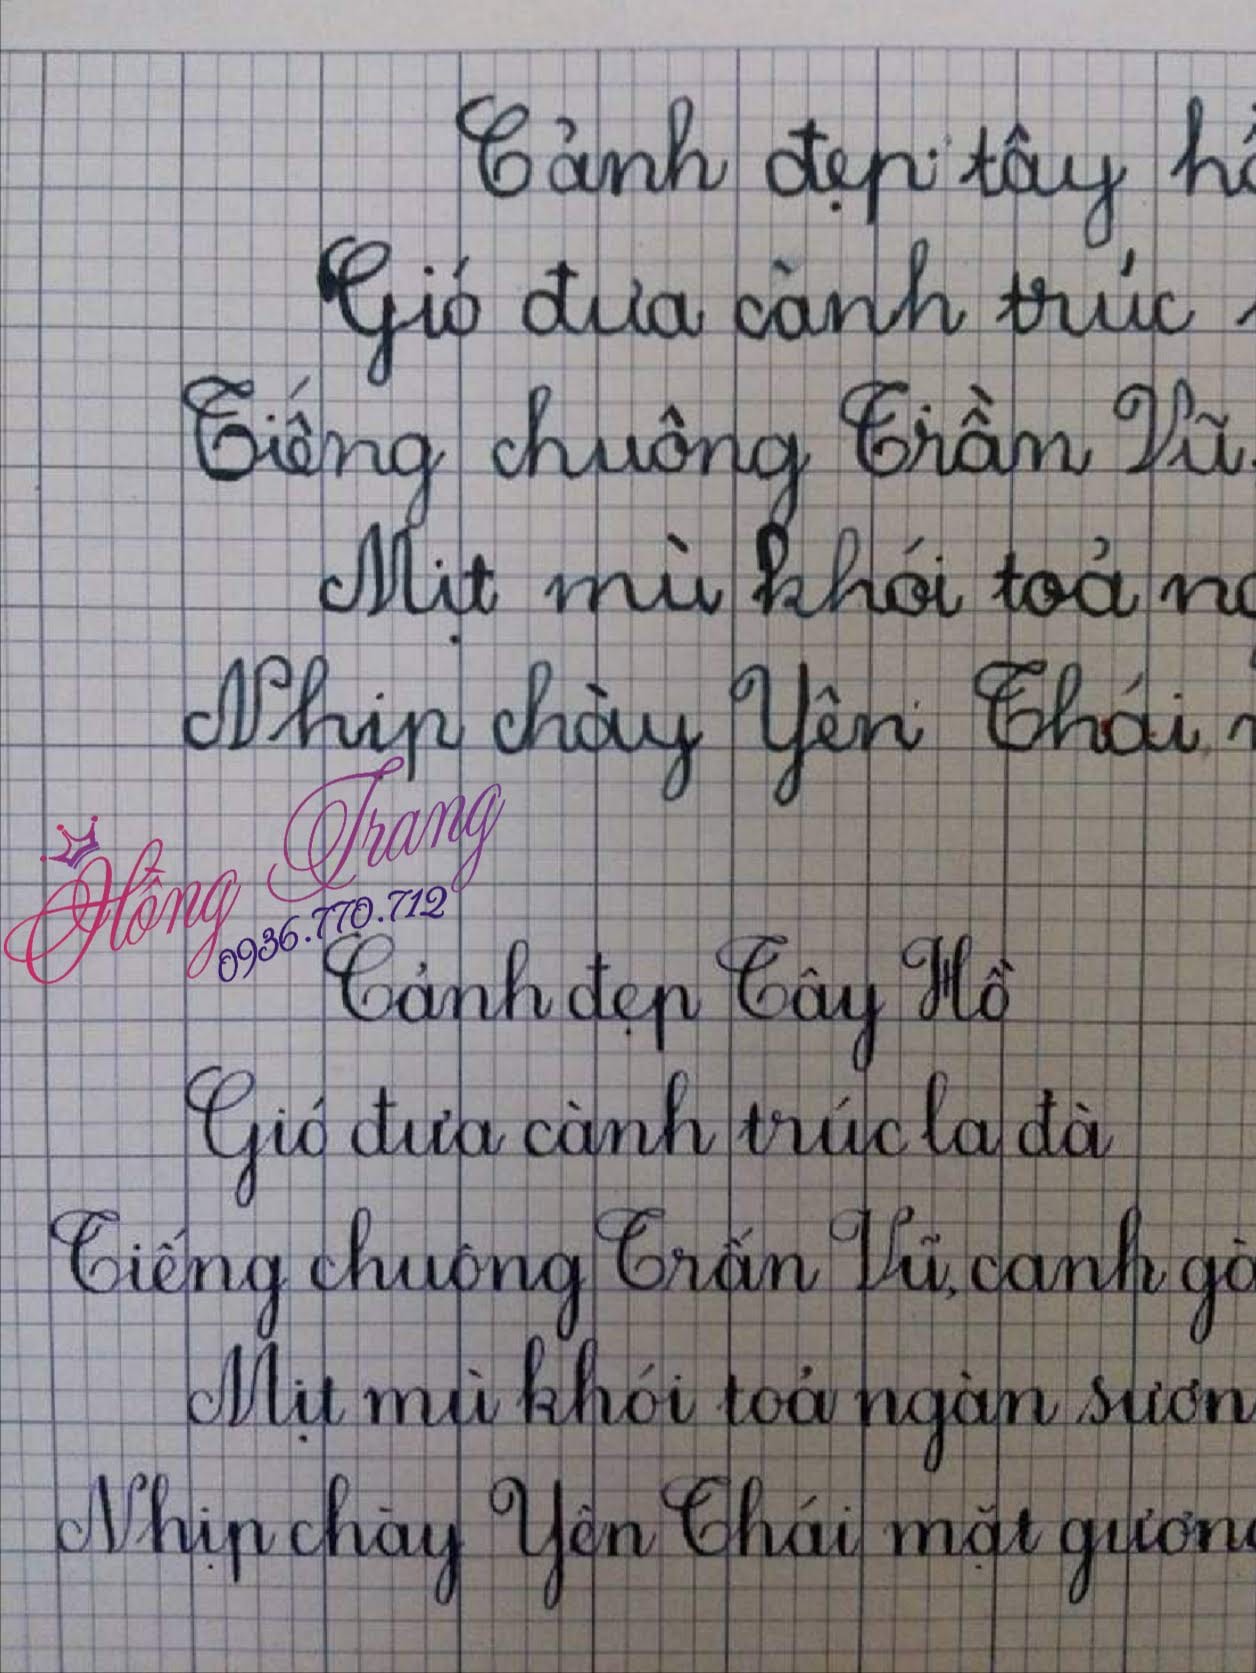 Cảnh đẹp tây
Gió đưa cành trúc
Tiếng chuông Trần Vũ
Mịt mù khói toả
Nhip chày Yên Thái
Hồng Trang
0936.770.712
Cảnh đẹp Tây Hồ
Gió đưa cành trúc la đà
Tiếng chuông Trấn Vũ, canh gà
Mịt mù khói toả ngàn sươn
Nhịp chày Yên Thái mặt gươn